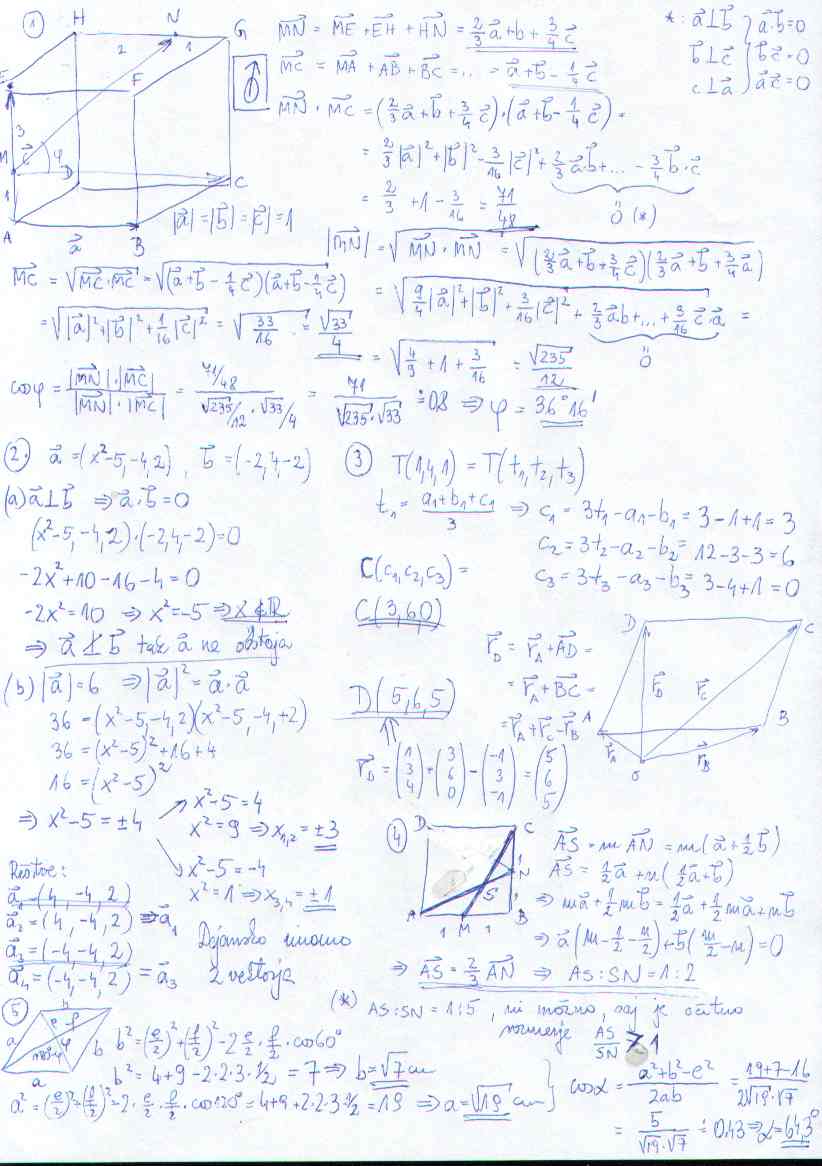 ① H N G
2 1
E F
3
M c⃗ φ D C
1
A a⃗ B
|a⃗|=|b⃗|=|c⃗|=1
MN⃗ = ME⃗ + EH⃗ + HN⃗ = 2/3 a⃗ + b⃗ + 3/4 c⃗
MC⃗ = MA⃗ + AB⃗ + BC⃗ = ... = a⃗ + b⃗ - 1/4 c⃗
*: a⃗⊥b⃗ } a⃗·b⃗=0
b⃗⊥c⃗ } b⃗c⃗=0
c⊥a⃗ } a⃗c⃗=0
MN⃗ · MC⃗ = (2/3 a⃗ + b⃗ + 3/4 c⃗)·(a⃗ + b⃗ - 1/4 c⃗) =
= 2/3 |a⃗|² + |b⃗|² - 3/16 |c⃗|² + 2/3 a⃗·b⃗ + ... - 3/4 b⃗·c⃗
= 2/3 + 1 - 3/16 = 71/48
0 (*)
|MN⃗| = √(MN⃗ · MN⃗) = √((2/3 a⃗ + b⃗ + 3/4 c⃗)(2/3 a⃗ + b⃗ + 3/4 a⃗))
= √(9/4 |a⃗|² + |b⃗|² + 3/16 |c⃗|² + 2/3 a⃗b + ... + 9/16 c⃗·a⃗) =
0
= √(4/9 + 1 + 3/16) = √235/12
MC⃗ = √(MC⃗·MC⃗) = √((a⃗ + b⃗ - 1/4 c⃗)(a⃗ + b⃗ - 1/4 c⃗))
= √(|a⃗|² + |b⃗|² + 1/16 |c⃗|²) = √(33/16) = √33/4
cosφ = |MN⃗|·|MC⃗| / |MN⃗|·|MC⃗| = 71/48 / (√235/12 · √33/4) = 71/(√235·√33) ≐ 0.8 ⇒ φ = 36°16'
② a⃗ = (x²-5,-4,2), b⃗ = (-2,4,-2)
(a) a⃗⊥b⃗ ⇒ a⃗·b⃗ = 0
(x²-5,-4,2)·(-2,4,-2) = 0
-2x²+10-16-4=0
-2x²=10 ⇒ x²=-5 ⇒ x∉ℝ
⇒ a⃗⊥̸b⃗ tak a⃗ ne obstoja
(b) |a⃗|=6 ⇒ |a⃗|² = a⃗·a⃗
36 = (x²-5,-4,2)(x²-5,-4,+2)
36 = (x²-5)²+16+4
16 = (x²-5)²
⇒ x²-5 = ±4
x²-5=4
x²=9 ⇒ x₁,₂ = ±3
x²-5=-4
x²=1 ⇒ x₃,₄ = ±1
Rešitve:
a⃗₁ = (4, -4, 2)
a⃗₂ = (4, -4, 2) ⇒ a⃗₁
a⃗₃ = (-4, -4, 2)
a⃗₄ = (-4, -4, 2) = a⃗₃
Dejansko imamo
2 vektorja
③ T(1,4,1) = T(t₁,t₂,t₃)
t₁ = (a₁+b₁+c₁)/3 ⇒ c₁ = 3t₁-a₁-b₁ = 3-1+1 = 3
c₂ = 3t₂-a₂-b₂ = 12-3-3=6
c₃ = 3t₃-a₃-b₃ = 3-4+1=0
C(c₁,c₂,c₃) =
C(3,6,0)
r⃗_D = r⃗_A + AD⃗ =
= r⃗_A + BC⃗ =
= r⃗_A + r⃗_C - r⃗_B
D C
r⃗_D r⃗_C
A B
r⃗_A O r⃗_B
D(5,6,5)
r⃗_D = (1 3 4) + (3 6 0) - (-1 3 -1) = (5 6 5)
④ D C
1
N
S
A M B
1 1
AS⃗ = m AN⃗ = m(a⃗ + 1/2 b⃗)
AS⃗ = 1/2 a⃗ + n(1/2 a⃗ + b⃗)
⇒ ma⃗ + 1/2 mb⃗ = 1/2 a⃗ + 1/2 ma⃗ + nb⃗
⇒ a⃗(m - 1/2 - n/2) + b⃗(m/2 - n) = 0
⇒ AS⃗ = 2/3 AN⃗ ⇒ AS:SN = 1:2
(*) AS:SN = 1:5, ni možno, saj je očitno
razmerje AS/SN > 1
⑤ b
a e f φ b
a
b² = (e/2)² + (f/2)² - 2 e/2 · f/2 · cos60°
b² = 4+9-2·2·3·1/2 = 7 ⇒ b = √7 cm
a² = (e/2)² + (f/2)² - 2· e/2 · f/2 · cos120° = 4+9+2·2·3·1/2 = 19 ⇒ a = √19 cm
cosα = (a²+b²-e²)/2ab = (19+7-16)/(2√19·√7)
= 5/(√19·√7) ≐ 0,43 ⇒ α = 64,3°